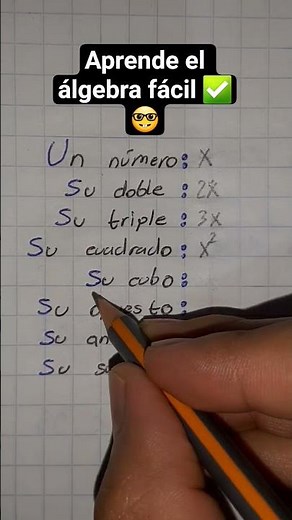 Aprende el
álgebra fácil ✅
🤓
Un número: x
Su doble: 2x
Su triple: 3x
Su cuadrado: x²
Su cubo:
Su
Su
Su